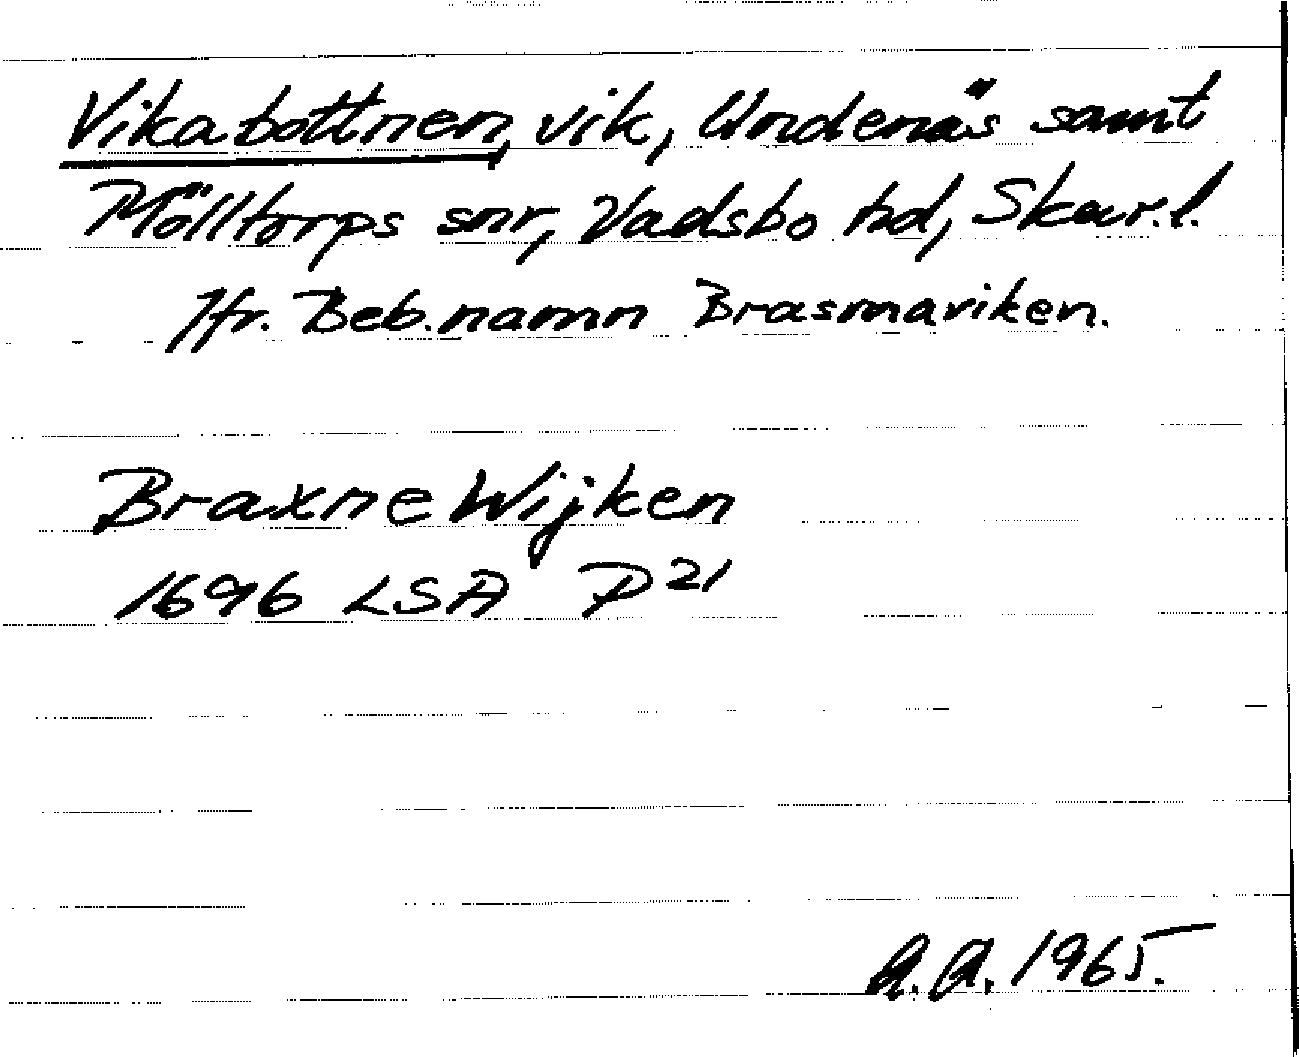 Vikabottnen, vik, Undenäs samt
Mölltorps snr, Vadsbo hd, Skar.l.
Jfr. Beb.namn Brasmaviken.
Braxne Wijken
1696 LSA P21
A.A. 1965.